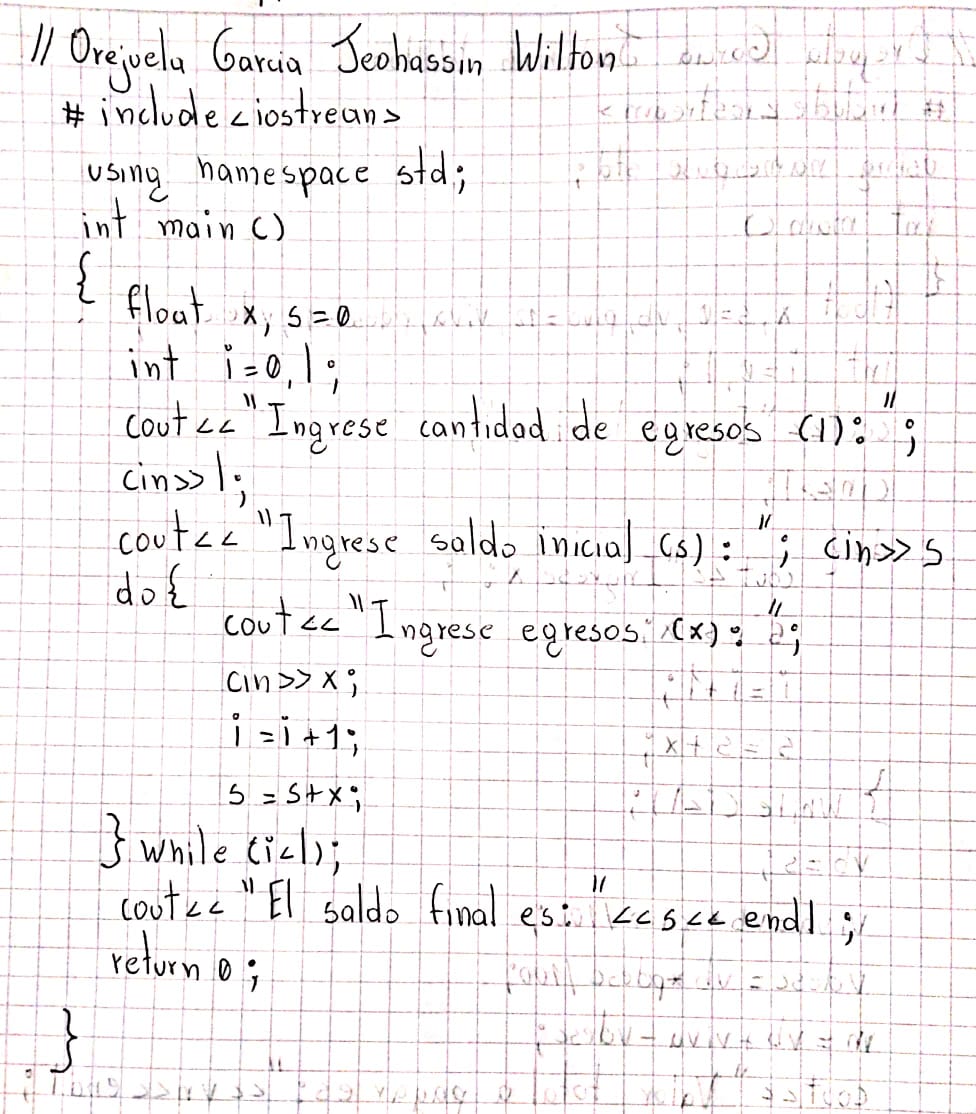 // Orejuela Garcia Jeohassin Wilton
# include <iostrean>
using namespace std;
int main ()
{
float x, s=0
int i=0, l;
cout<< "Ingrese cantidad de egresos (l): ";
cin>>l;
cout<< "Ingrese saldo inicial (s): "; cin>>s
do{
cout<< "Ingrese egresos (x): ";
cin>>x;
i=i+1;
s=s+x;
} while (i<l);
cout<< "El saldo final es: "<<s<< endl;
return 0;
}